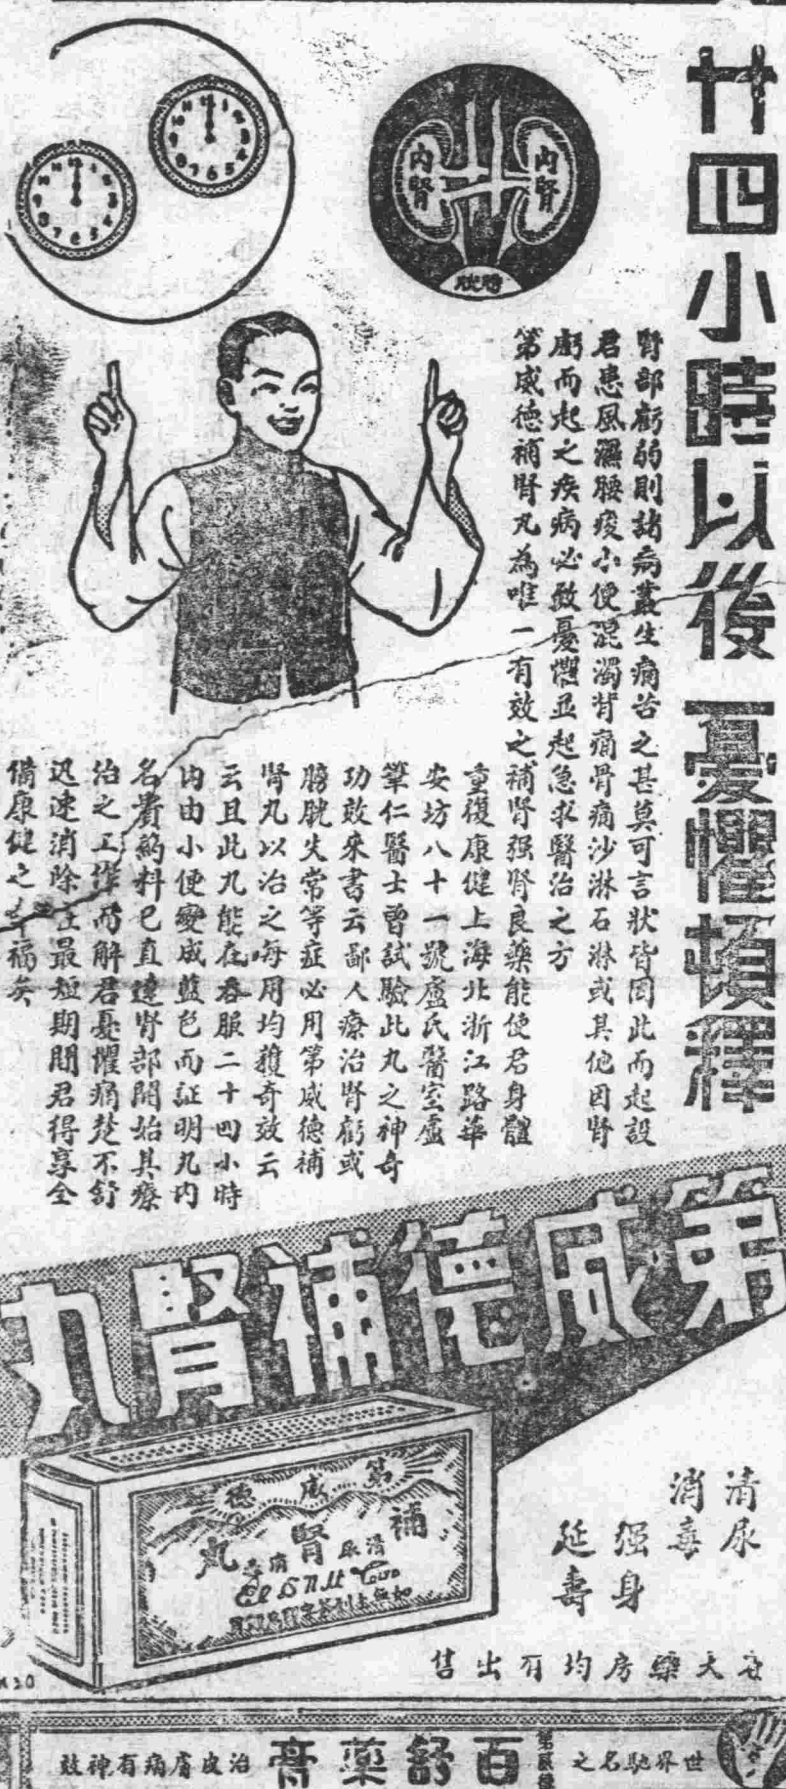 廿四小時以後 憂懼頓釋
內腎
內腎
膀胱
腎部虧弱則諸病叢生痛苦之甚莫可言狀皆因此而起設
君患風濕腰痠小便混濁背痛骨痛沙淋石淋或其他因腎
虧而起之疾病必致憂懼並起急求醫治之方
第威德補腎丸為唯一有效之補腎强腎良藥能使君身體
重復康健上海北浙江路華
安坊八十一號盧氏醫室盧
筆仁醫士曾試驗此丸之神奇
功效來書云鄙人療治腎虧或
膀胱失常等症必用第威德補
腎丸以治之每用均獲奇效云
云且此丸能在吞服二十四小時
內由小便變成藍色而証明丸內
名貴藥料已直達腎部開始其療
治之工作而解君憂懼痛楚不舒
迅速消除在最短期間君得享全
備康健之幸福矣
第威德補腎丸
第威德
補腎丸
清尿消毒
清尿
消毒
强身
延壽
各大藥房均有出售
世界馳名之
百舒藥膏
治皮膚病有神效